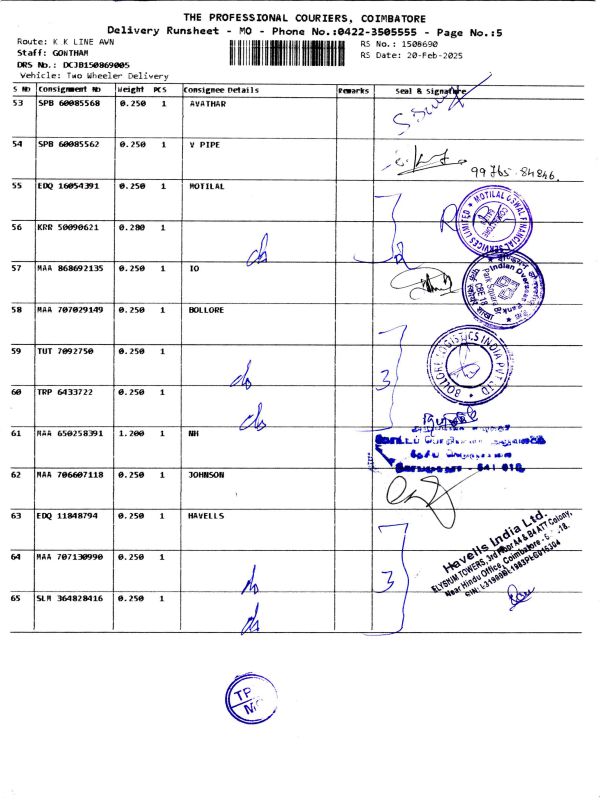 THE PROFESSIONAL COURIERS, COIMBATORE
Delivery Runsheet - MO - Phone No.:0422-3505555 - Page No.:5
Route: K.K LINE AWN RS No.: 1508690
Staff: GONTHAM RS Date: 20-Feb-2025
DRS No.: DCJB150869005
Vehicle: Two Wheeler Delivery
S No Consignment No Weight PCS Consignee Details Remarks Seal & Signature
53 SPB 60085568 0.250 1 AVATHAR
54 SPB 60085562 0.250 1 V PIPE
99765-84846.
55 EDQ 16054391 0.250 1 MOTILAL
MOTILAL OSWAL FINANCIAL SERVICES LIMITED
56 KRR 50090621 0.280 1 do
57 MAA 868692135 0.250 1 IO
Indian Overseas Bank
CBE 18
58 MAA 707029149 0.250 1 BOLLORE
BOLLORE LOGISTICS INDIA PVT LTD
59 TUT 7092750 0.250 1 do
3
60 TRP 6433722 0.250 1 do
61 MAA 650258391 1.200 1 NH
62 MAA 706607118 0.250 1 JOHNSON
63 EDQ 11848794 0.250 1 HAVELLS
Havells India Ltd.
ELYSIUM TOWERS, 3rd Floor A4 & B4 ATT Colony,
Near Hindu Office, Coimbatore
64 MAA 707130990 0.250 1 do
3
65 SLM 364828416 0.250 1 do
TP
MO